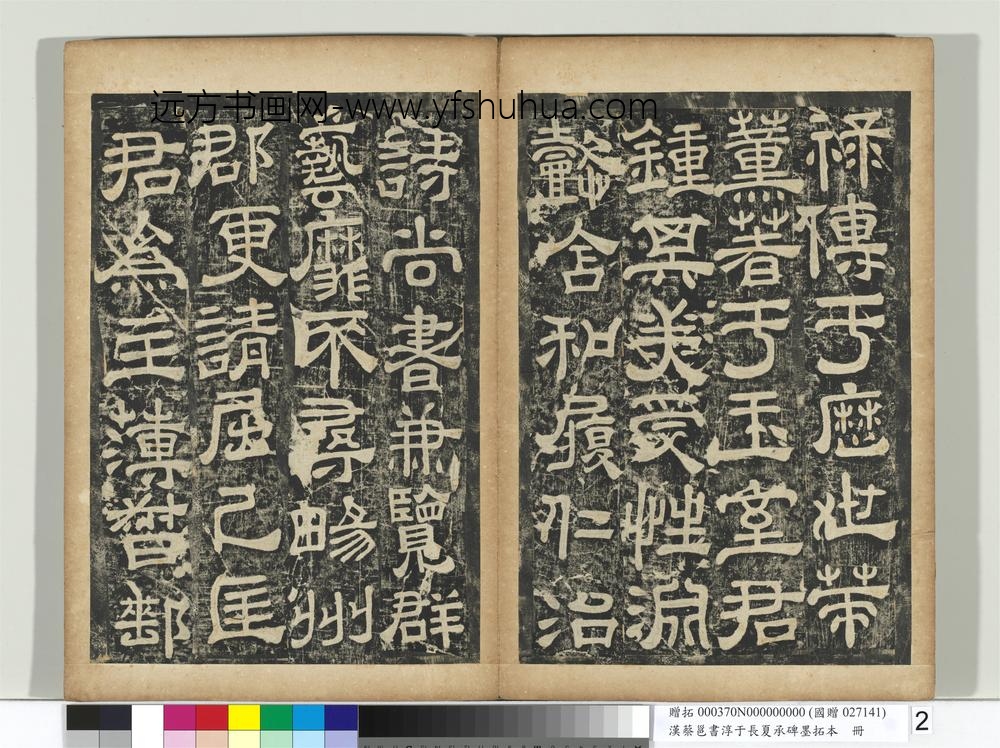 远方书画网-www.yfshuhua.com
祿傳于歷世策
薰著于王室君
鍾其美受性淵
懿含和履仁治
詩尚書兼覽群
藝靡不尋暢州
郡更請屈己匡
君為主薄督郵
贈拓 000370N000000000 (國贈 027141)
漢蔡邕書淳于長夏承碑墨拓本 冊
2